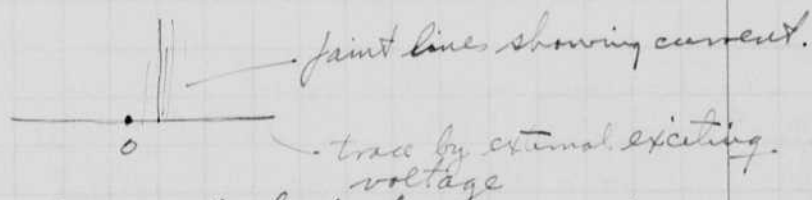 faint lines showing current.
0
trace by external exciting
voltage